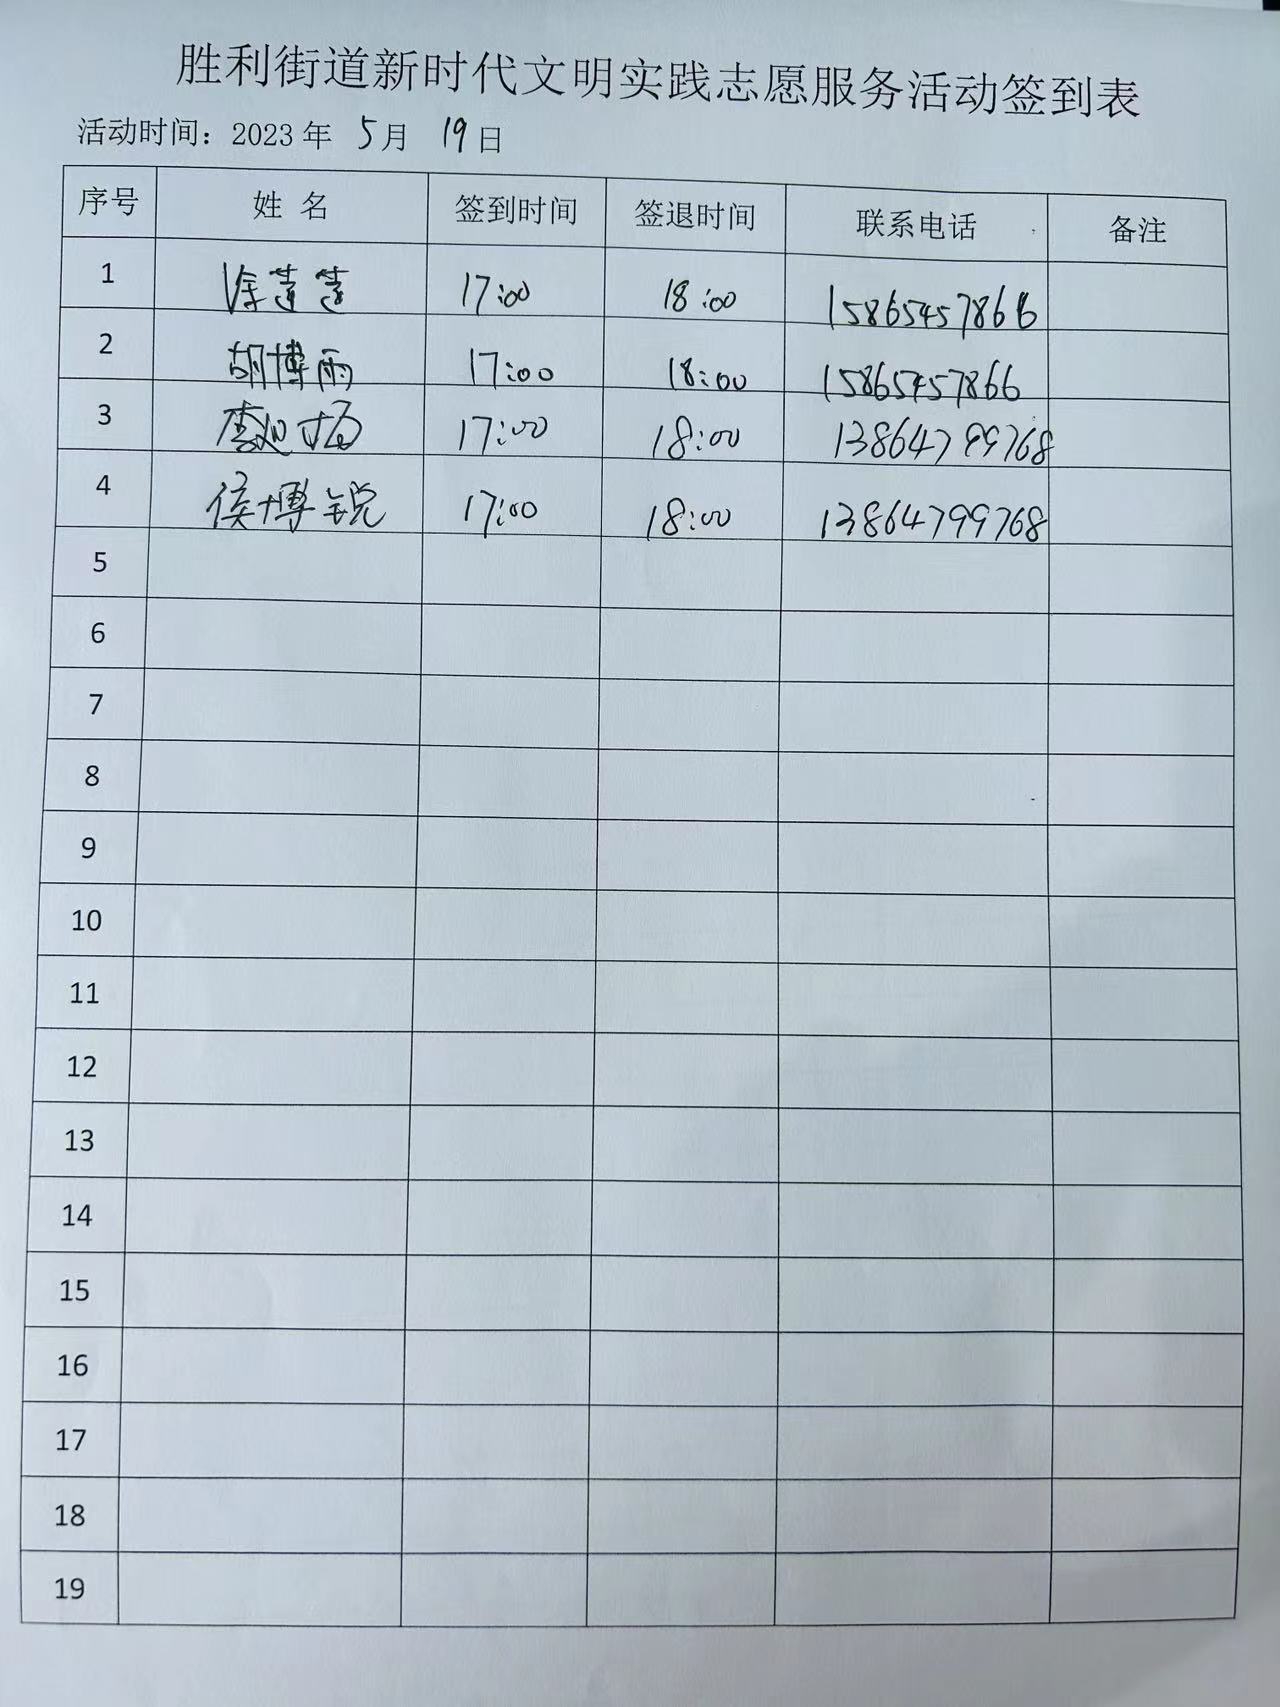 胜利街道新时代文明实践志愿服务活动签到表
活动时间：2023年 5月 19日
序号 姓 名 签到时间 签退时间 联系电话 备注
1 徐莲莲 17:00 18:00 15865457866
2 胡博雨 17:00 18:00 15865457866
3 17:00 18:00 13864799768
4 侯博锐 17:00 18:00 13864799768
5
6
7
8
9
10
11
12
13
14
15
16
17
18
19